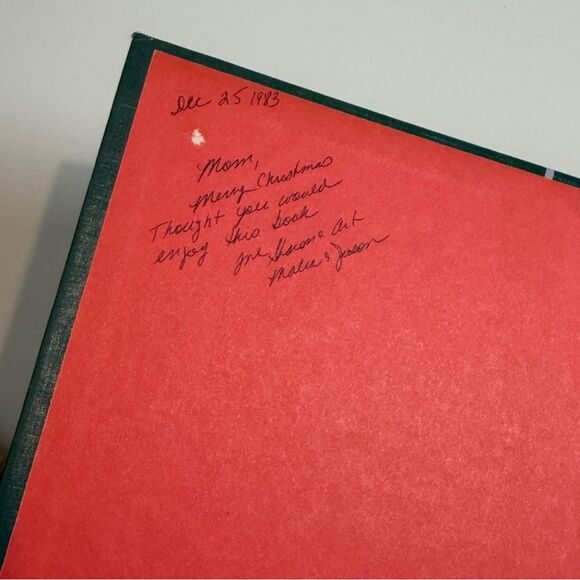 Dec 25 1983
Mom,
Merry Christmas
Thought you would
enjoy this book
Sharon & Art
& Jason